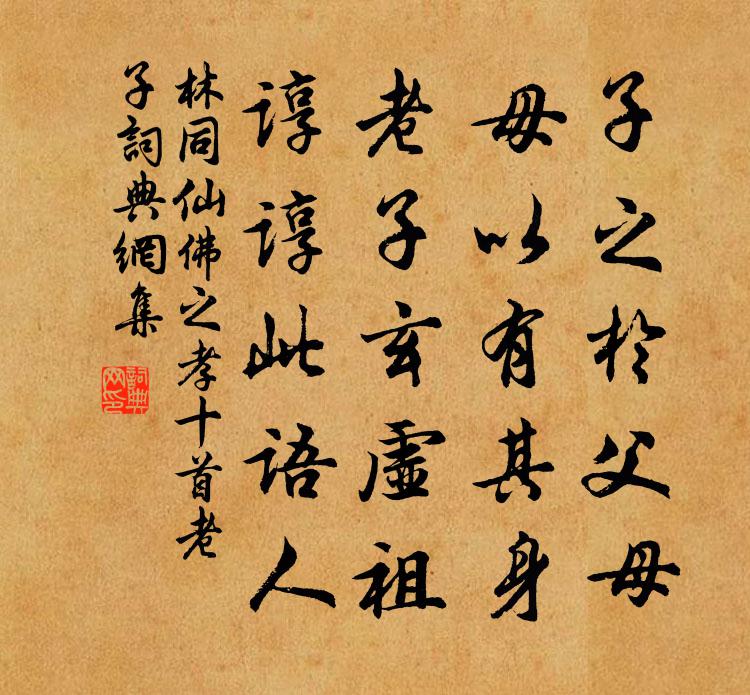 子之於父母
毋以有其身
老子玄虛祖
諄諄此語人
林同仙佛之孝十首老
子詞典網集
詞典
网印